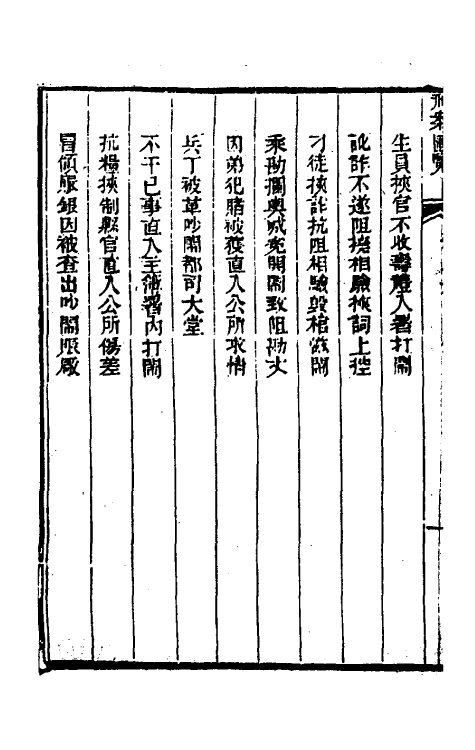 刑案匯覽
生員挾官不收壽禮入署打鬧
訛詐不遂阻撓相驗挾詞上控
刁徒挾詐抗阻相驗毀棺滋鬧
乘勘攔輿求免開圖致阻勘丈
因弟犯賭被獲直入公所求情
兵丁被革吵鬧都司大堂
不干己事直入主簿署內打鬧
抗糧挾制縣官直入公所傷差
冒領賑銀因被查出吵鬧賑廠